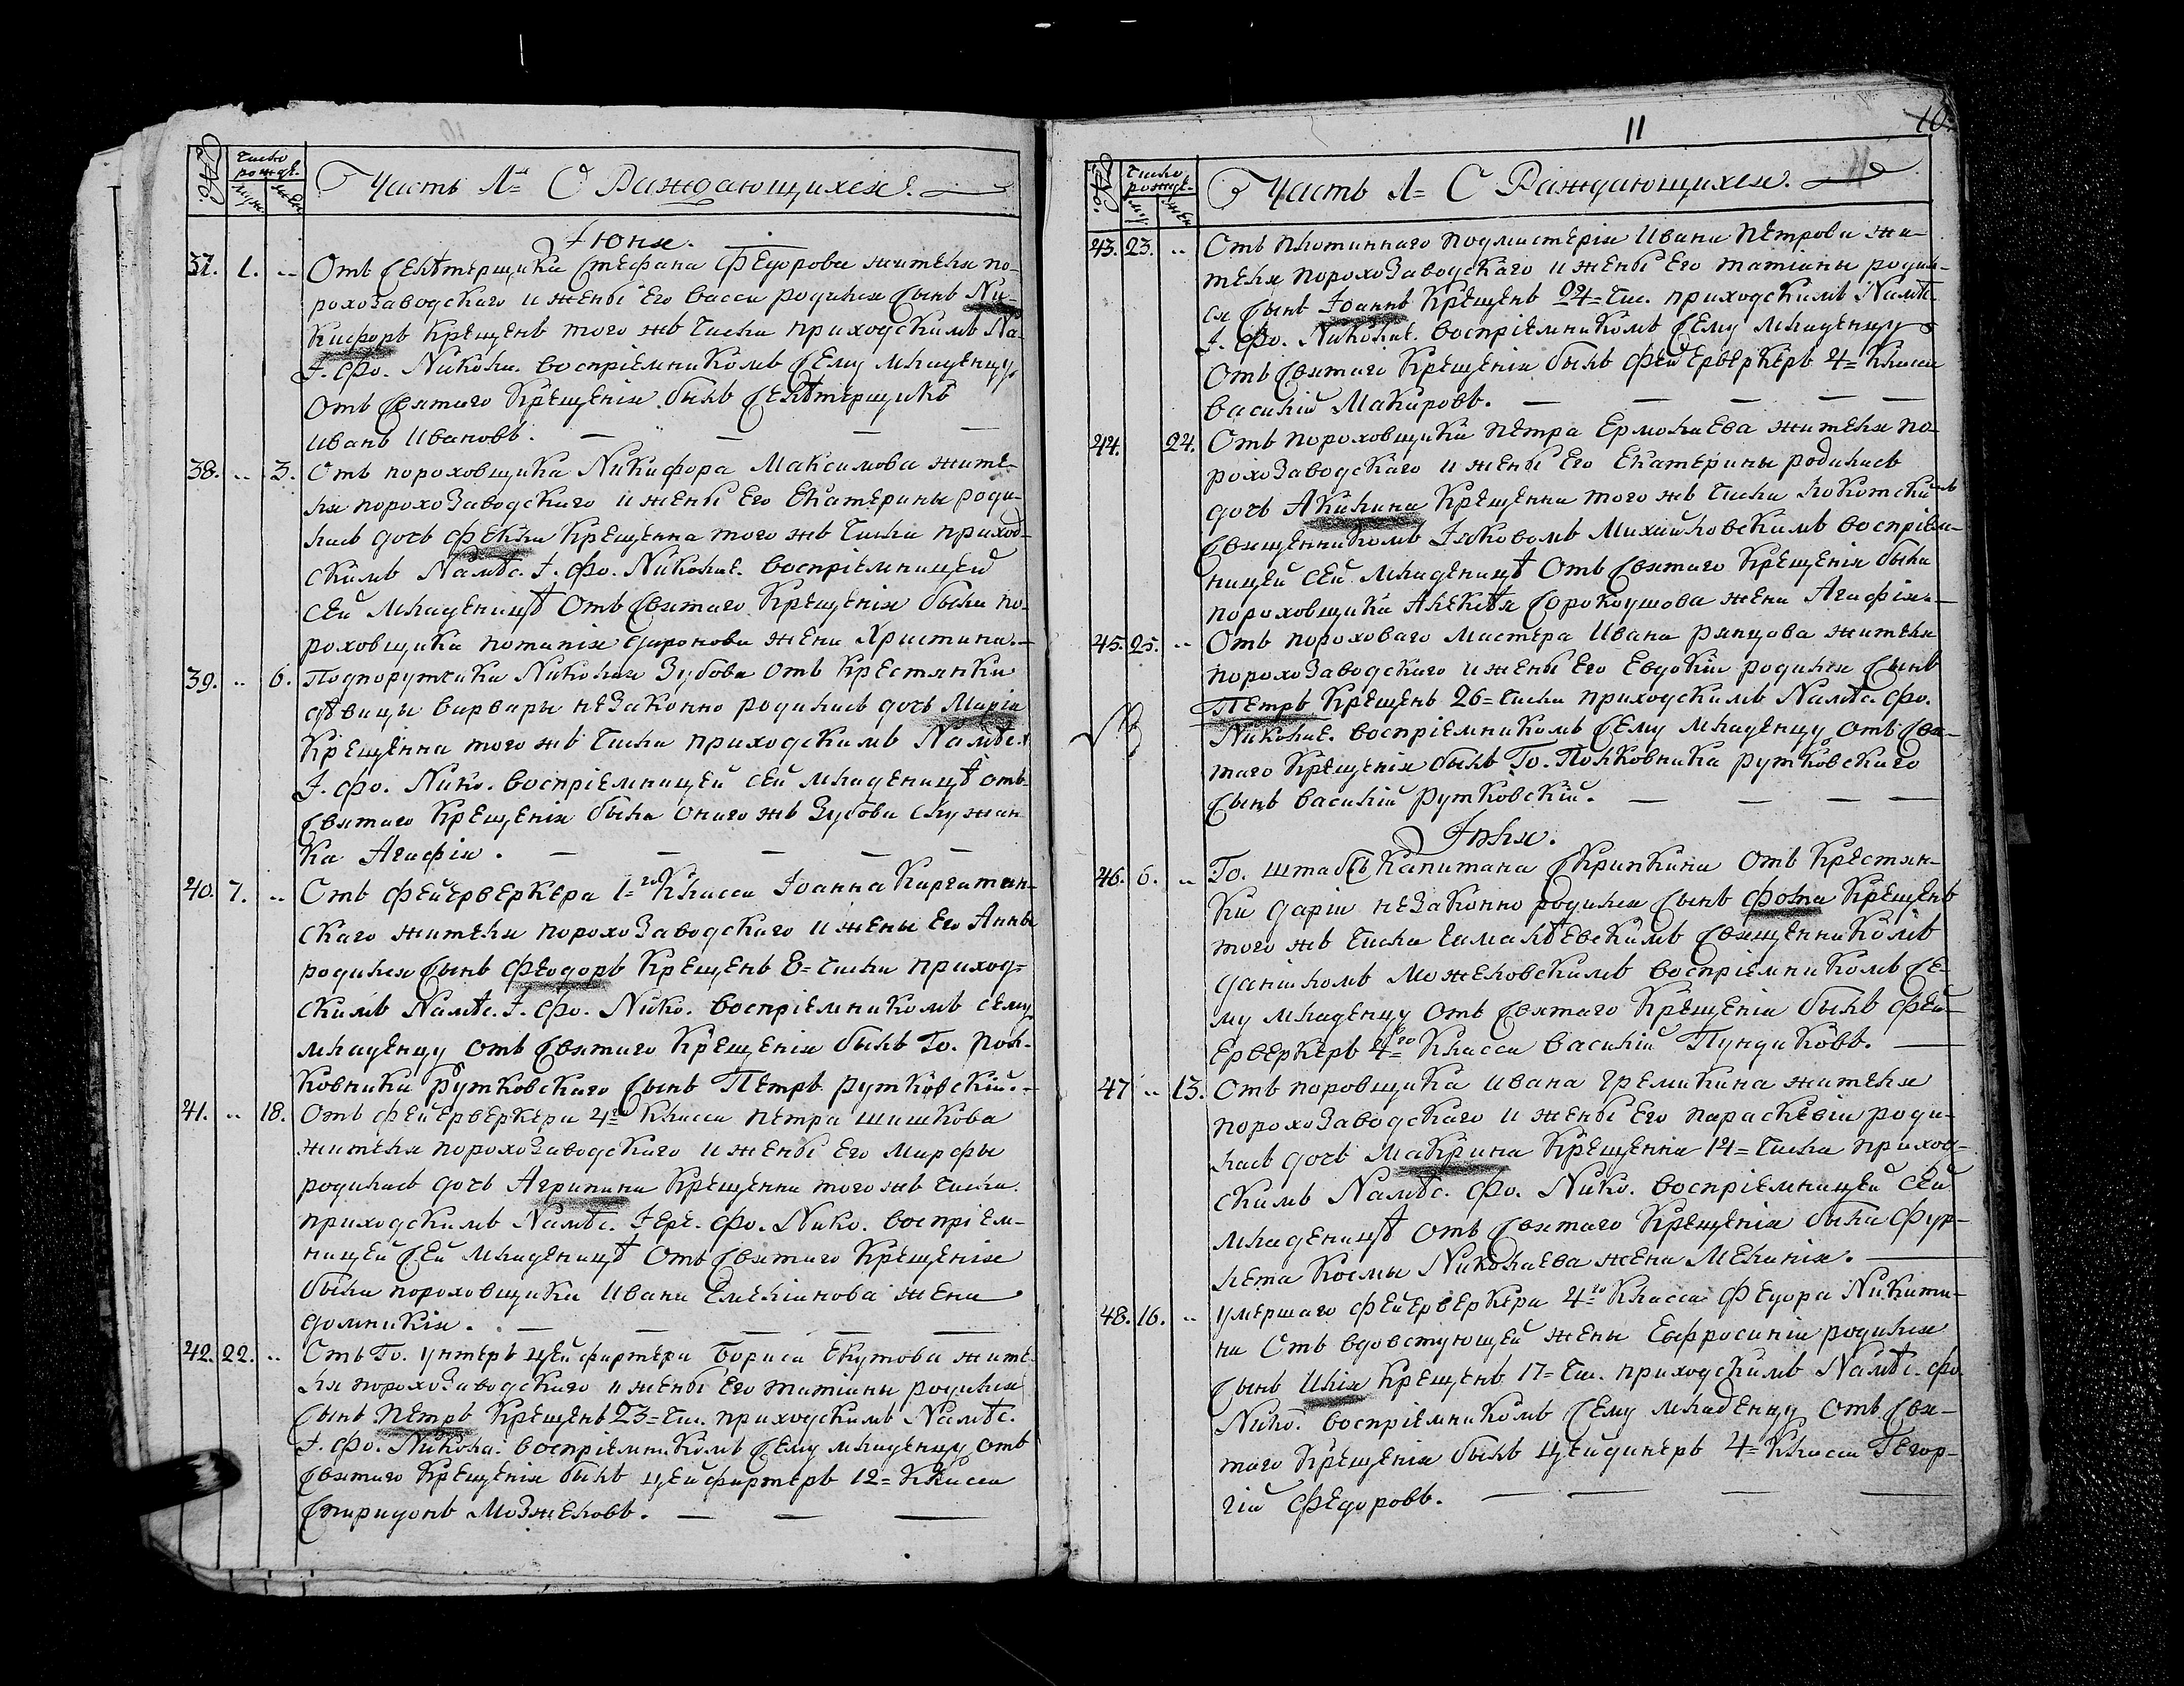 №
Число рожде.
муж.
жен.
Часть 1я О Раждающихся.
Июня.
37. 1. ..
Отъ селѣтерщика Стефана Федорова жителя по-
рохозаводскаго и жены Его Вассы родился сынъ Ни-
кифоръ крещенъ того жъ числа приходскимъ На.
I. Фо. Никола. воспріемникомъ сему младенцу
отъ святаго крещенія былъ селѣтерщикъ
Иванъ Ивановъ.
38. .. 3.
Отъ пороховщика Никифора Максимова жите-
ля порохозаводскаго и жены Его Екатерины роди-
лась дочь Фекла крещенна того жъ числа приход-
скимъ Намѣс. I. Фо. Николае. воспріемницей
сей младеницѣ отъ святаго крещенія была по-
роховщика Потапія Миронова жена Христина.
39. .. 6.
Подпорутчика Николая Зубова отъ крестянки
дѣвицы Варвары незаконно родилась дочь Марія
крещенна того жъ числа приходскимъ Намѣс.
I. Фо. Нико. воспріемницей сей младеницѣ отъ
святаго крещенія была онаго жъ Зубова служан-
ка Агафія.
40. 7. ..
Отъ фейерверкера 1го класса Іоанна Каргатин-
скаго жителя порохозаводскаго и жены Его Анны
родился сынъ Феодоръ крещенъ 8= числа приход-
скимъ Намѣс. I. Фо. Нико. воспріемникомъ сему
младенцу отъ святаго крещенія былъ Го. Пол-
ковника Рутковскаго сынъ Петръ Рутковскій.
41. .. 18.
Отъ фейерверкера 4го класса Петра Шишкова
жителя порохозаводскаго и жены Его Марфы
родилась дочь Агрипина крещенна того жъ числа.
приходскимъ Намѣс. Iере. Фо. Нико. воспріем-
ницей сей младеницѣ отъ святаго крещенія
была пороховщика Ивана Емеліанова жена
Домникія.
42. 22. ..
Отъ Го. унтеръ цейхвартера Бориса Екутова жите-
ля порохозаводскаго и жены Его Татіаны родился
сынъ Петръ крещенъ 23= чис. приходскимъ Намѣс.
I. Фо. Никола. воспріемникомъ сему младенцу отъ
святаго крещенія былъ цейхвартеръ 12= класса
Спиридонъ Мозжеловъ.
11
10.
№
Число рожде.
муж
жен
Часть 1= О Раждающихся.
43. 23. ..
Отъ плотиннаго подмастерія Ивана Петрова жи-
теля порохозаводскаго и жены Его Татіаны родил-
ся сынъ Іоаннъ крещенъ 24= чис. приходскимъ Намѣс.
I. Фо. Николае. воспріемникомъ сему младенцу
отъ святаго крещенія былъ фейерверкеръ 4= класса
Василій Макаровъ.
44. 24.
Отъ пороховщика Петра Ермолаева жителя по-
рохозаводскаго и жены Его Екатерины родилась
дочь Акилина крещенна того жъ числа
священникомъ Іяковомъ Михайловскимъ воспріем-
ницей сей младеницѣ отъ святаго крещенія была
пороховщика Алексѣя Сорокоумова жена Агафія.
45. 25. ..
Отъ пороховаго мастера Ивана Рянцова жителя
порохозаводскаго и жены Его Евдокіи родился сынъ
Петръ крещенъ 26= числа приходскимъ Намѣс. Фо.
Николае. воспріемникомъ сему младенцу отъ свя-
таго крещенія былъ Го. Полковника Рутковскаго
сынъ Василій Рутковскій.
Іюля.
46. 6. ..
Го. штабсъ капитана Скрипкина отъ крестян-
ки Даріи незаконно родился сынъ Фома крещенъ
того жъ числа священникомъ
Даніиломъ Можеловскимъ воспріемникомъ се-
му младенцу отъ святаго крещенія былъ фей-
ерверкеръ 4го класса Василій Пундиковъ.
47 .. 13.
Отъ поровщика Ивана Гремикина жителя
порохозаводскаго и жены Его Параскевіи роди-
лась дочь Макрина крещенна 14= числа приход-
скимъ Намѣс. Фо. Нико. воспріемницей сей
младеницѣ отъ святаго крещенія была фур-
лета Космы Николаева жена Меланія.
48. 16. ..
Умершаго фейерверкера 4го класса Федора Никити-
на отъ вдовстующей жены Еыфросиніи родился
сынъ Илія крещенъ 17= чис. приходскимъ Намѣс. Фо.
Нико. воспріемникомъ сему младенцу отъ свя-
таго крещенія былъ цейдинеръ 4= класса Геор-
гій Федоровъ.